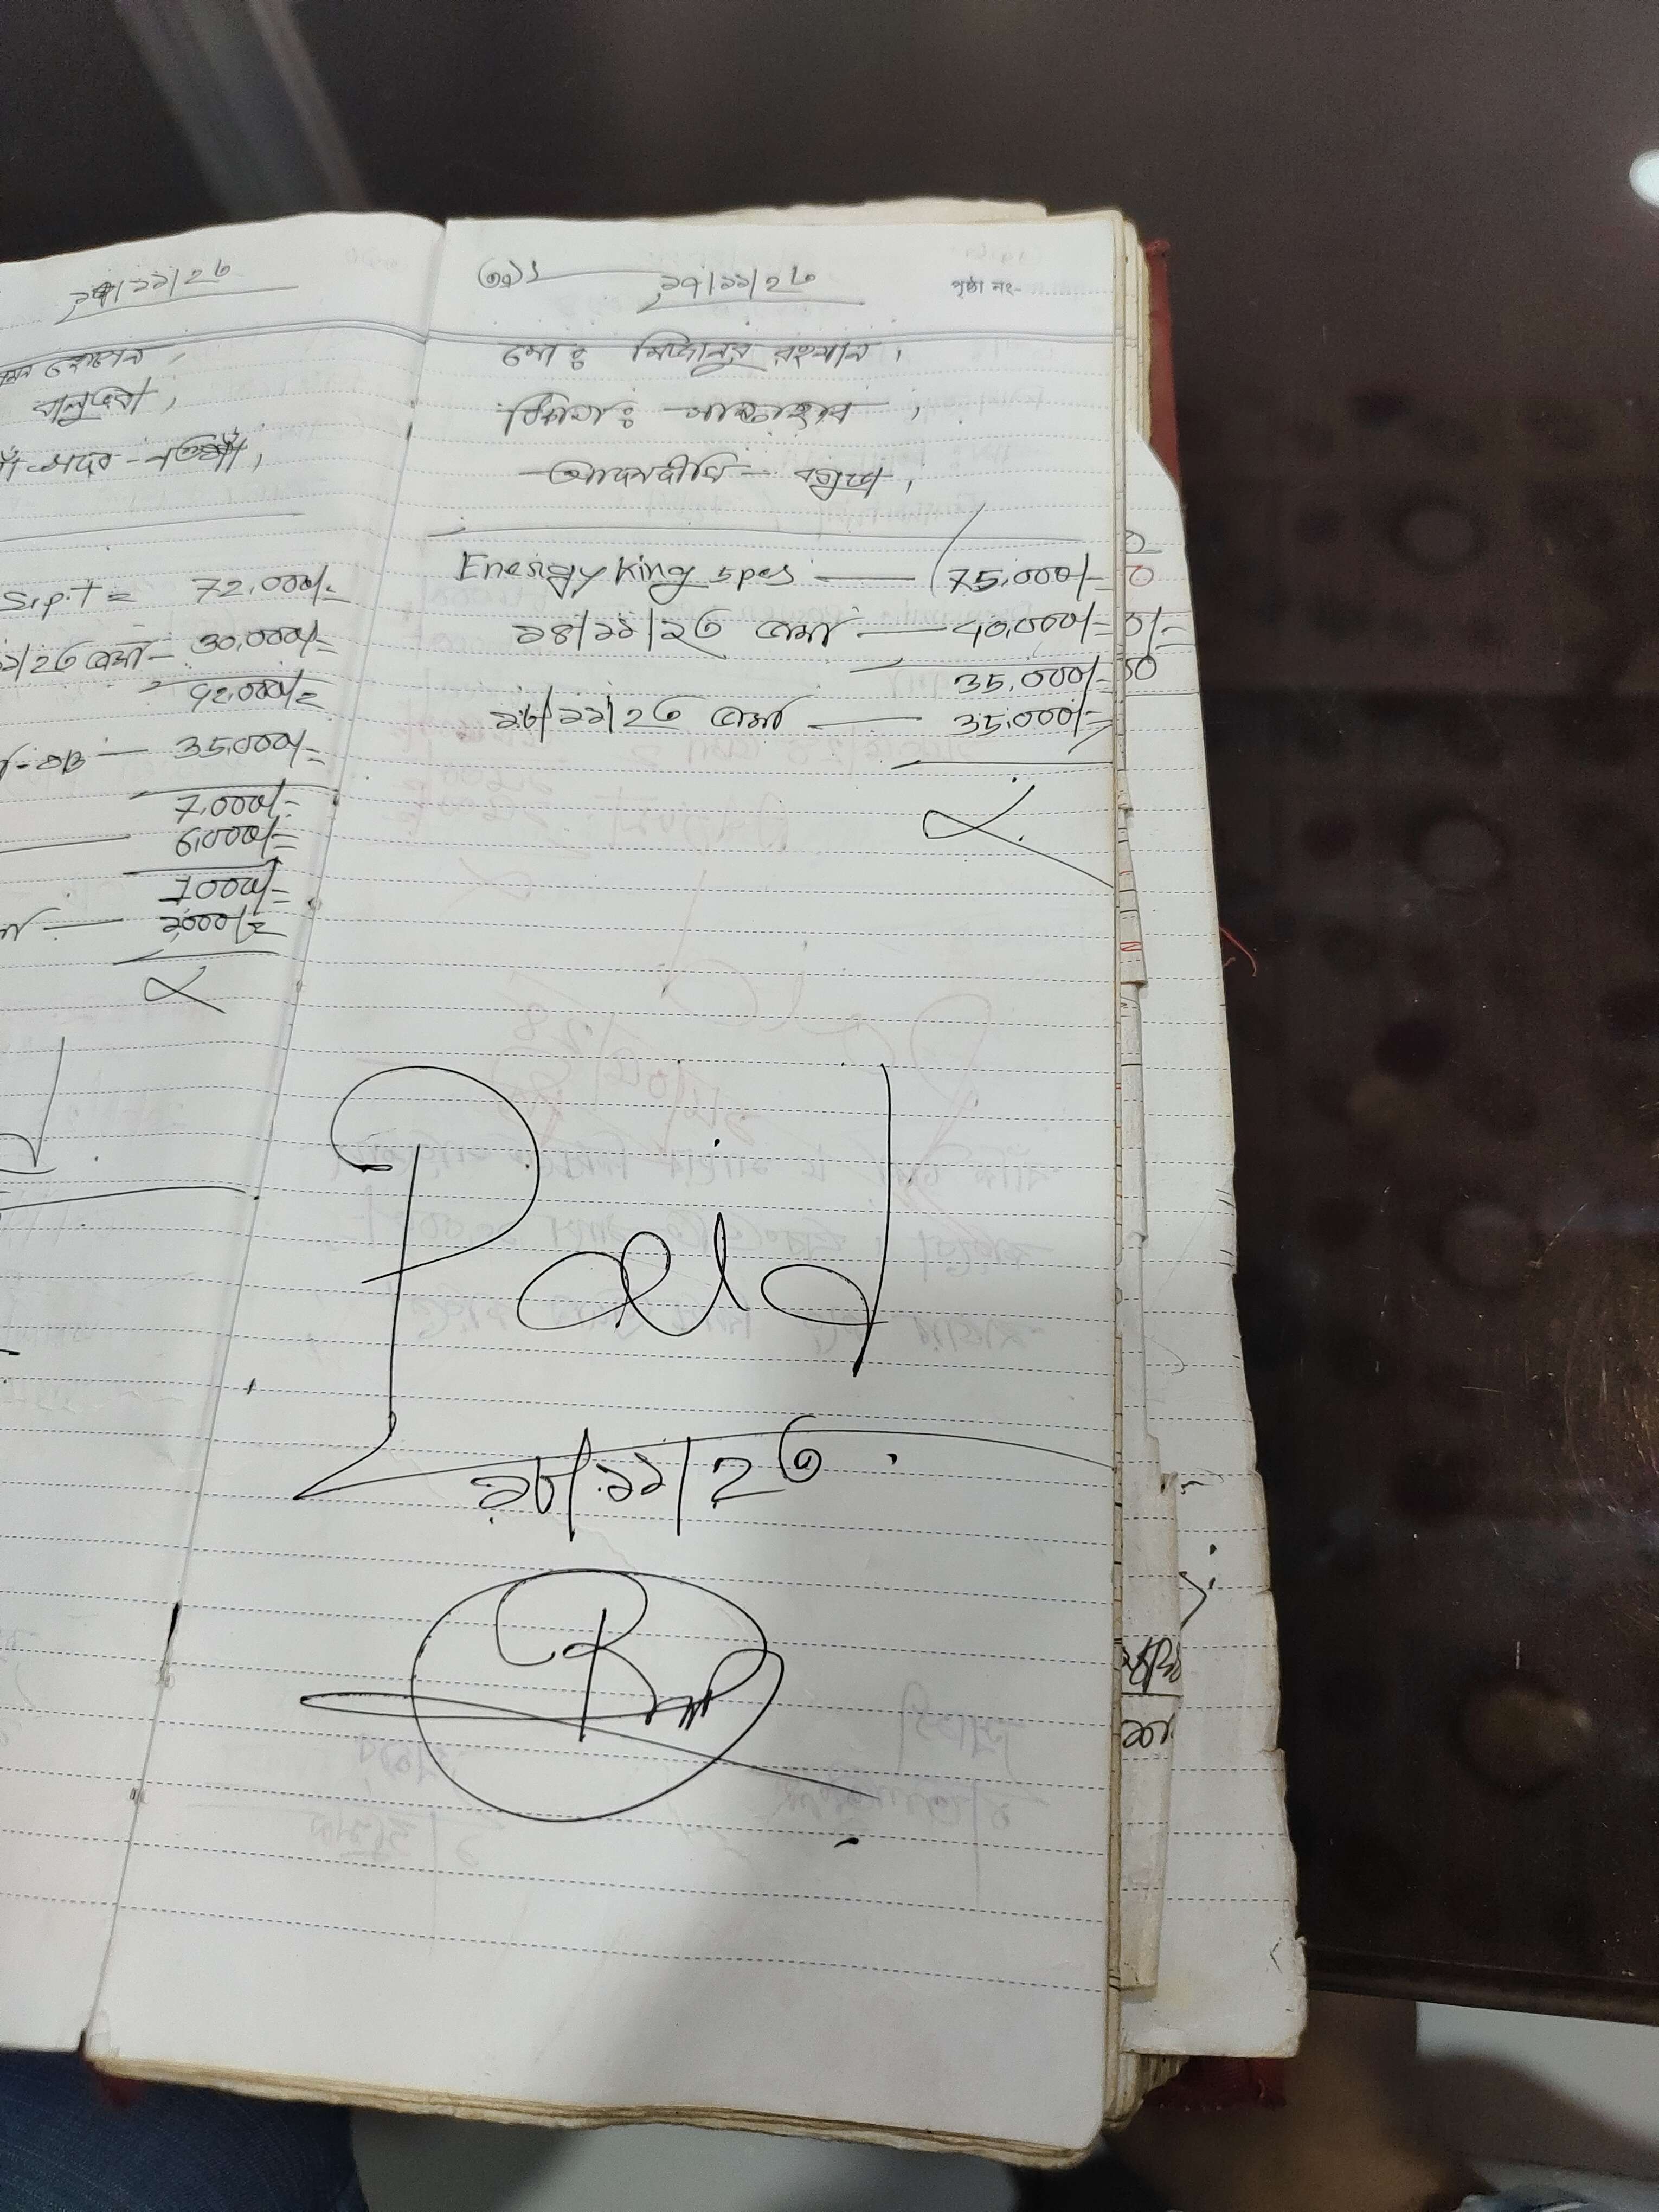 ২৭/১১/২৩
বালুডাঙ্গা,
সদর - নওগাঁ,
S.p.T = 72,000/=
১১/২৩ জমা - 30,000/=
42,000/=
35,000/=
7,000/=
6,000/=
1000/=
১০০০/=
৩৯১
২৭/১১/২৩
পৃষ্ঠা নং-
মোঃ মিজানুর রহমান,
ঠিকানাঃ সান্তাহার,
আদমদীঘি - বগুড়া,
Energy King 5pcs — 75,000/=
২৪/১১/২৩ জমা — 40,000/=
35,000/=
২৮/১১/২৩ জমা — 35,000/=
Paid
২৮/১১/২৩